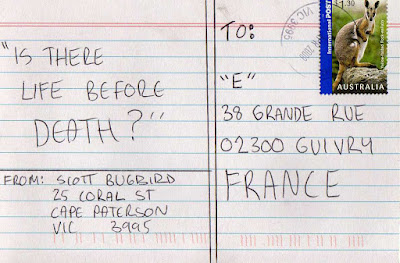 "IS THERE
LIFE BEFORE
DEATH?"
FROM: SCOTT BUGBIRD
25 CORAL ST
CAPE PATERSON
VIC 3995
TO:
"E"
38 GRANDE RUE
02300 GUIVRY
FRANCE
VIC 3995
International POST
$1.30
AUSTRALIA